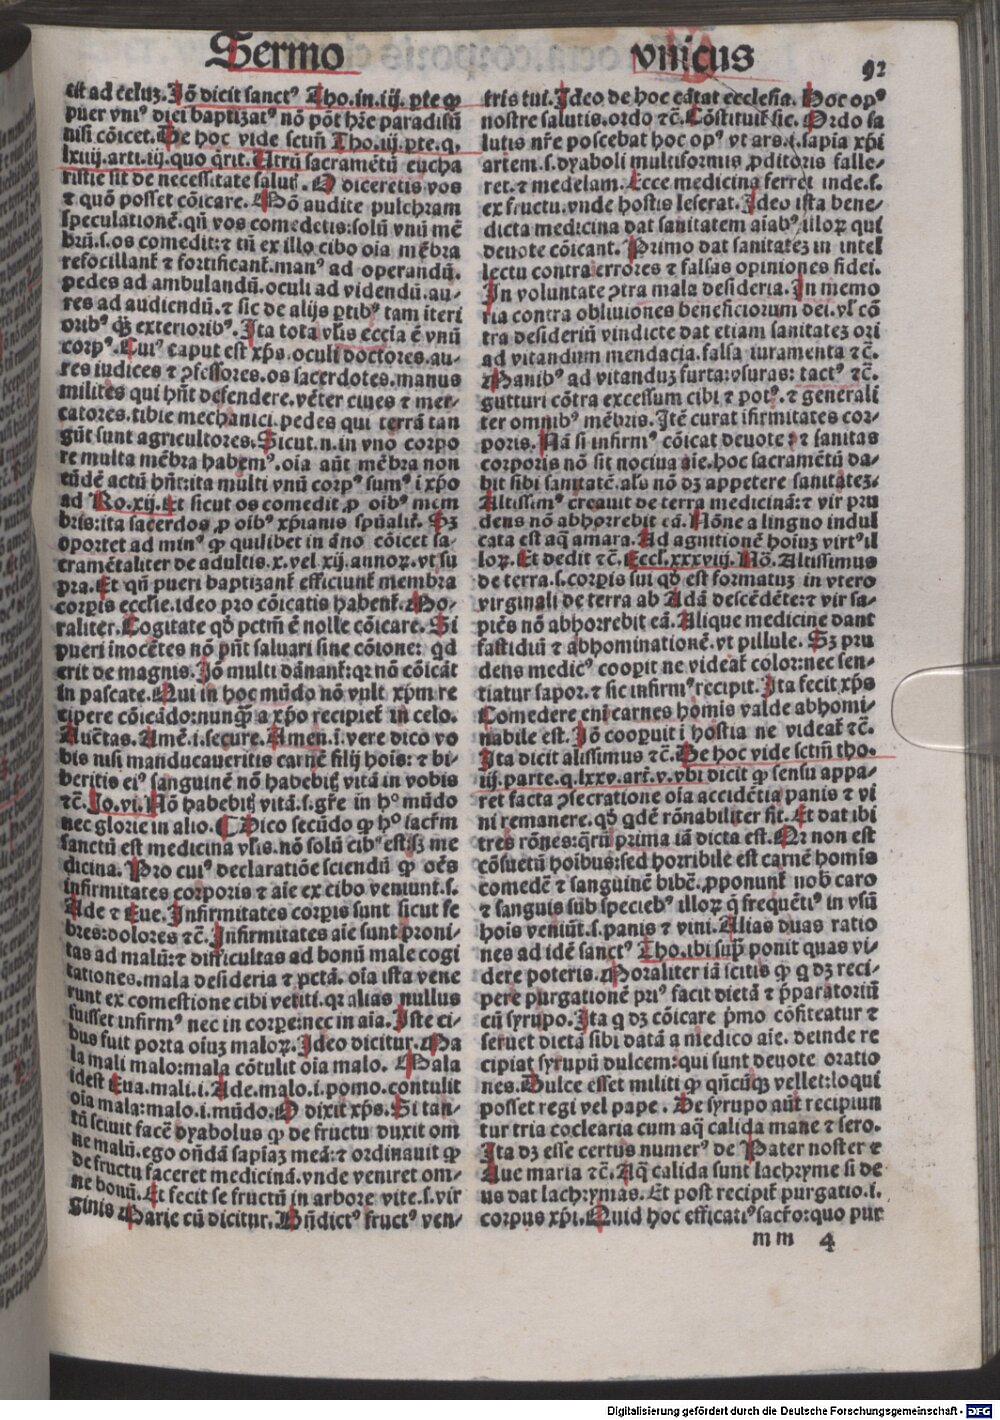 Sermo vnicus
92
cit ad celuꝫ. Jō dicit sanctꝰ Tho. in. iij. pte ꝙ
puer vniꝰ diei baptizatꝰ nō pōt hr̄e paradisū
nisi cōicet. De hoc vide sctm̄ Tho. iij. pte. q.
lxxiij. arti. iij. quo q̄rit. Utrū sacramētū eucha
ristie sit de necessitate salut̄. O diceretis vos
⁊ quō posset cōicare. Rō audite pulchram
speculationē. qn̄ vos comedetis: solū vnū mē
brū. s. os comedit: ⁊ tn̄ ex illo cibo oīa mēbra
refocillant̄ ⁊ fortificant̄. manꝰ ad operandū.
pedes ad ambulandū. oculi ad videndū. au-
res ad audiendū. ⁊ sic de alijs ꝑtibꝰ tam iteri
oribꝰ ꝙꝫ exterioribꝰ. Ita tota vl̄is eccl̄ia ē vnū
corpꝰ. Cuiꝰ caput est xp̄s. oculi doctores. au-
res iudices ⁊ ꝯfessores. os sacerdotes. manus
milites qui hn̄t defendere. vēter ciues ⁊ mer-
catores. tibie mechanici. pedes qui terrā tan
gūt sunt agricultores. Sicut. n. in vno corpo
re multa mēbra habemꝰ. oīa aūt mēbra non
eūdē actū hn̄t: ita multi vnū corpꝰ sumꝰ i xp̄o
ad Ro. xij. Et sicut os comedit ꝓ oībꝰ mem
bris: ita sacerdos ꝓ oībꝰ xp̄ianis spūalit̄. Sꝫ
oportet ad minꝰ ꝙ quilibet in āno cōicet sa-
cramētaliter de adultis. x. vel xij. annoꝝ. vt su
pra. Et qn̄ pueri baptizant̄ efficiunt̄ membra
corp̄is eccl̄ie. ideo pro cōicatis habent̄. Mo-
raliter. Cogitate qd̄ pctm̄ ē nolle cōicare. Si
pueri inocētes nō pn̄t saluari sine cōione: qd
erit de magnis. Jō multi dānant̄: qr nō cōicāt
in pascate. Qui in hoc mūdo nō vult xp̄m re
cipere cōicādo: nunqꝫ a xp̄o recipiet̄ in celo.
Auctas. Amē. i. secure. Amen. i. vere dico vo
bis nisi manducaueritis carnē filij hois: ⁊ bi-
beritis eiꝰ sanguinē nō habebitꝫ vitā in vobis
⁊c̄. Jo. vi. Nō habebitꝫ vitā. s. gr̄e in hꝰ mūdo
nec glorie in alio. ¶ Dico secūdo ꝙ hꝰ sacr̄m
sanctū est medicina vl̄is. nō solū cibꝰ est: sꝫ me
dicina. Pro cuiꝰ declaratiōe sciendū ꝙ oēs
infirmitates corporis ⁊ aīe ex cibo veniunt. s.
Ade ⁊ Eue. Infirmitates corpis sunt sicut fe
bres: dolores ⁊c̄. Infirmitates aīe sunt proni-
tas ad malū: ⁊ difficultas ad bonū male cogi
tationes. mala desideria ⁊ pctā. oīa ista vene
runt ex comestione cibi vetiti. qr alias nullus
fuisset infirmꝰ nec in corpe: nec in aīa. Iste ci-
bus fuit porta oīuꝫ maloꝝ. Ideo dicitur. Ma
la mali malo: mala cōtulit oīa malo. Mala
idest Eua. mali. i. Ade. malo. i. pomo. contulit
oīa mala: malo. i. mūdo. O dixit xp̄s. Si tan-
tū sciuit facē dyabolus ꝙ de fructu duxit om
ne malū. ego ondā sapīaꝫ meā: ⁊ ordinauit ꝙ
de fructu faceret medicinā. vnde veniret om-
ne bonū. Et fecit se fructū in arbore vite. s. vir
ginis Marie cū dicitur. Bn̄dictꝰ fructꝰ ven-
tris tui. Ideo de hoc cātat ecclesia. Hoc opꝰ
nostre salutis. ordo ⁊c̄. Cōstituit̄ sic. Ordo sa
lutis nr̄e poscebat hoc opꝰ vt ars. i. sapia xp̄i
artem. s. dyaboli multiformis ꝓditoris falle-
ret. ⁊ medelam. Ecce medicina ferret inde. s.
ex fructu. vnde hostis leserat. Ideo ista bene-
dicta medicina dat sanitatem aīabꝰ illoꝝ qui
deuote cōicant. Primo dat sanitateꝫ in intel
lectu contra errores ⁊ falsas opiniones fidei.
In voluntate ꝯtra mala desideria. In memo
ria contra obliuiones beneficiorum dei. vl̄ cō
tra desideriū vindicte dat etiam sanitateꝫ ori
ad vitandum mendacia. falsa iuramenta ⁊c̄.
Manibꝰ ad vitanduꝫ furta: vsuras: tactꝰ ⁊c̄.
gutturi cōtra excessum cibi ⁊ potꝰ. ⁊ generali
ter omnibꝰ mēbris. Itē curat ifirmitates cor-
poris. Nā si infirmꝰ cōicat deuote: ⁊ sanitas
corporis nō sit nociua aīe. hoc sacramētū da-
bit sibi sanitatē. als nō dꝫ appetere sanitateꝫ.
Altissimꝰ creauit de terra medicinā: ⁊ vir pru
dens nō abhorrebit eā. Nōne a lingno indul
cata est aq̄ amara. Ad agnitionē hoiuꝫ virtꝰ il
loꝝ. Et dedit ⁊c̄. Eccl̄. xxxviij. Nō. Altissimus
de terra. s. corpis sui qd̄ est formatuꝫ in vtero
virginali de terra ab Adā descēdēte: ⁊ vir sa-
piēs nō abhorrebit eā. Alique medicine dant
fastidiū ⁊ abhominationē. vt pillule. Sꝫ pru
dens medicꝰ coopit ne videat̄ color: nec sen-
tiatur sapor. ⁊ sic infirmꝰ recipit. Ita fecit xp̄s
Comedere eni carnes homis valde abhomi-
nabile est. Jō cooꝑuit i hostia ne videat̄ ⁊c̄.
Ita dicit altissimus ⁊c̄. De hoc vide sctm̄ tho.
iij. parte. q. lxxv. art̄. v. vbi dicit ꝙ sensu appa-
ret facta ꝯsecratione oīa accidētia panis ⁊ vi
ni remanere. qd̄ qdē rōnabiliter fit. Et dat ibi
tres rōnes: qrū prima iā dicta est. Qr non est
cōsuetū hoibus: sed horribile est carnē homis
comedē ⁊ sanguinē bibē. ꝓponunt̄ nob̄ caro
⁊ sanguis sub speciebꝰ illoꝝ q̄ frequētiꝰ in vsū
hois veniūt. s. panis ⁊ vini. Alias duas ratio
nes ad idē sanctꝰ Tho. ibi supͣ ponit quas vi-
dere poteris. Moraliter iā scitis ꝙ q dꝫ reci-
pere purgationē priꝰ facit dietā ⁊ p̄paratoriū
cū syrupo. Ita q dꝫ cōicare p̄mo cōfiteatur ⁊
seruet dietā sibi datā a medico aīe. deinde re
cipiat syrupū dulcem: qui sunt deuote oratio
nes. Dulce esset militi ꝙ qn̄cūqꝫ vellet: loqui
posset regi vel pape. De syrupo aūt recipiun
tur tria coclearia cum aq̄ calida mane ⁊ sero.
Ita dꝫ esse certus numerꝰ de Pater noster ⁊
Aue maria ⁊c̄. Aq̄ calida sunt lachryme si de
us dat lachrymas. Et post recipit̄ purgatio. i.
corpus xp̄i. Quid hoc efficatiꝰ sacr̄o: quo pur
mm 4
Digitalisierung gefördert durch die Deutsche Forschungsgemeinschaft - DFG